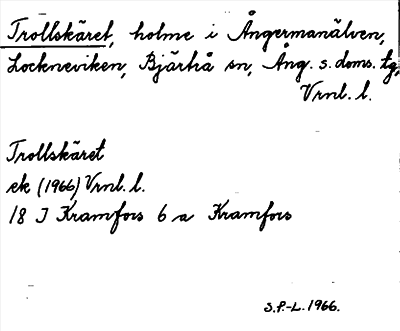 Trollskäret, holme i Ångermanälven,
Lockneviken, Bjärtrå sn, Ång. s. doms. tg,
Vrnl. l.
Trollskäret
ek (1966) Vrnl. l.
18 J Kramfors 6 a Kramfors
S.P.-L. 1966.